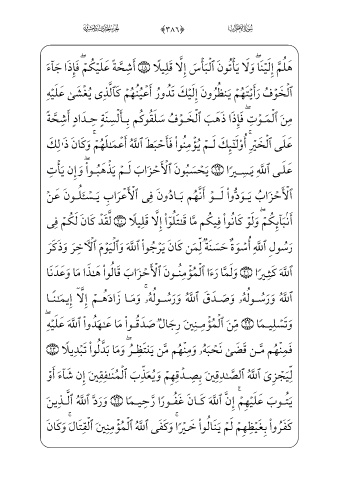 ﴿٣٨٦﴾
هَلُمَّ إِلَيْنَا ۖ وَلَا يَأْتُونَ ٱلْبَأْسَ إِلَّا قَلِيلًا ۝١٨ أَشِحَّةً عَلَيْكُمْ ۖ فَإِذَا جَآءَ
ٱلْخَوْفُ رَأَيْتَهُمْ يَنظُرُونَ إِلَيْكَ تَدُورُ أَعْيُنُهُمْ كَٱلَّذِى يُغْشَىٰ عَلَيْهِ
مِنَ ٱلْمَوْتِ ۖ فَإِذَا ذَهَبَ ٱلْخَوْفُ سَلَقُوكُم بِأَلْسِنَةٍ حِدَادٍ أَشِحَّةً
عَلَى ٱلْخَيْرِ ۚ أُو۟لَـٰٓئِكَ لَمْ يُؤْمِنُوا۟ فَأَحْبَطَ ٱللَّهُ أَعْمَـٰلَهُمْ ۚ وَكَانَ ذَٰلِكَ
عَلَى ٱللَّهِ يَسِيرًا ۝١٩ يَحْسَبُونَ ٱلْأَحْزَابَ لَمْ يَذْهَبُوا۟ ۖ وَإِن يَأْتِ
ٱلْأَحْزَابُ يَوَدُّوا۟ لَوْ أَنَّهُم بَادُونَ فِى ٱلْأَعْرَابِ يَسْـَٔلُونَ عَنْ
أَنۢبَآئِكُمْ ۖ وَلَوْ كَانُوا۟ فِيكُم مَّا قَـٰتَلُوٓا۟ إِلَّا قَلِيلًا ۝٢٠ لَّقَدْ كَانَ لَكُمْ فِى
رَسُولِ ٱللَّهِ أُسْوَةٌ حَسَنَةٌ لِّمَن كَانَ يَرْجُوا۟ ٱللَّهَ وَٱلْيَوْمَ ٱلْـَٔاخِرَ وَذَكَرَ
ٱللَّهَ كَثِيرًا ۝٢١ وَلَمَّا رَءَا ٱلْمُؤْمِنُونَ ٱلْأَحْزَابَ قَالُوا۟ هَـٰذَا مَا وَعَدَنَا
ٱللَّهُ وَرَسُولُهُۥ وَصَدَقَ ٱللَّهُ وَرَسُولُهُۥ ۚ وَمَا زَادَهُمْ إِلَّآ إِيمَـٰنًا
وَتَسْلِيمًا ۝٢٢ مِّنَ ٱلْمُؤْمِنِينَ رِجَالٌ صَدَقُوا۟ مَا عَـٰهَدُوا۟ ٱللَّهَ عَلَيْهِ ۖ
فَمِنْهُم مَّن قَضَىٰ نَحْبَهُۥ وَمِنْهُم مَّن يَنتَظِرُ ۖ وَمَا بَدَّلُوا۟ تَبْدِيلًا ۝٢٣
لِّيَجْزِىَ ٱللَّهُ ٱلصَّـٰدِقِينَ بِصِدْقِهِمْ وَيُعَذِّبَ ٱلْمُنَـٰفِقِينَ إِن شَآءَ أَوْ
يَتُوبَ عَلَيْهِمْ ۚ إِنَّ ٱللَّهَ كَانَ غَفُورًا رَّحِيمًا ۝٢٤ وَرَدَّ ٱللَّهُ ٱلَّذِينَ
كَفَرُوا۟ بِغَيْظِهِمْ لَمْ يَنَالُوا۟ خَيْرًا ۚ وَكَفَى ٱللَّهُ ٱلْمُؤْمِنِينَ ٱلْقِتَالَ ۚ وَكَانَ